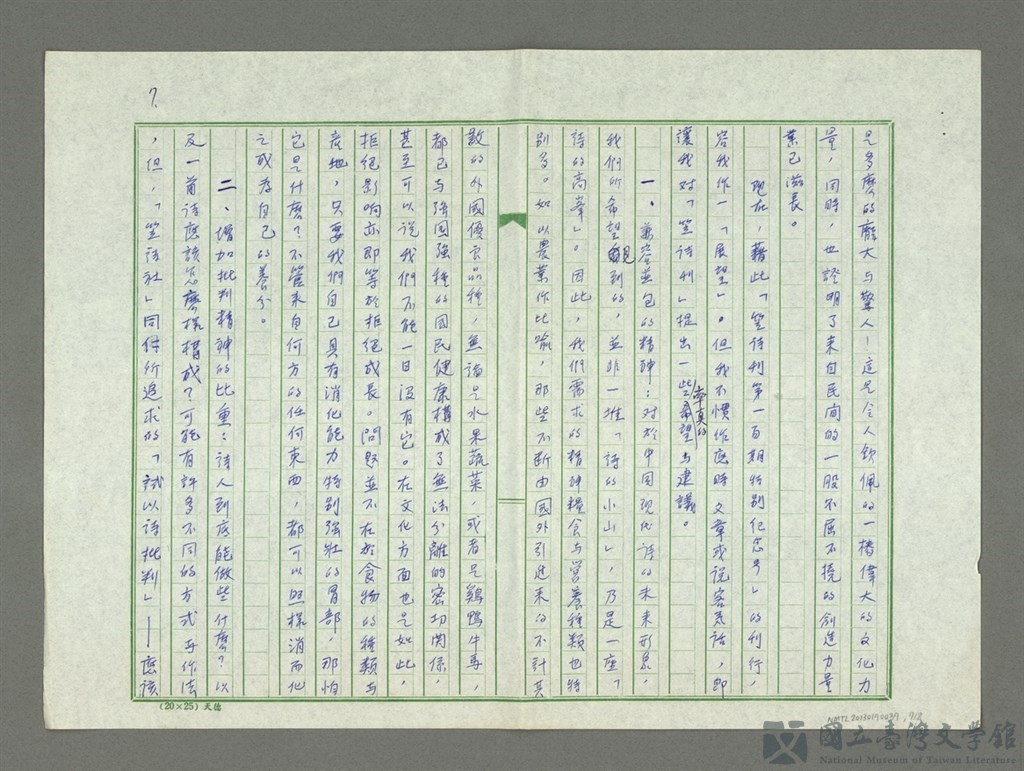 7.
是多麼的龐大与驚人！這是令人欽佩的一樁偉大的文化力
量，同時，也證明了來自民間的一股不屈不撓的創造力量
業已滋長。
現在，藉此「笠詩刊第一百期特別纪念号」的刊行，
容我作一「展望」。但我不慣作應時文章或説客氣話，即
讓我对「笠詩刊」提出一些率真的希望与建議。
一、兼容並包的精神：对於中国現代詩的未來形象，
我們所希望見到的，並非一堆「詩的小山」，乃是一座「
詩的高峯」。因此，我們需求的精神糧食与營養種類也特
別多。如以農業作比喻，那些不断由國外引進来的不計其
数的外國優良品種，無論是水果蔬菜，或者是鷄鴨牛馬，
都已与強国強種的国民健康構成了無法分離的密切関係，
甚至可以説我們不能一日没有它。在文化方面也是如此，
拒绝影响亦即等於拒绝成長。問題並不在於食物的種類与
産地，只要我們自己具有消化能力特别強壯的胃部，那怕
它是什麽？不管来自何方的任何東西，都可以照樣消而化
之成為自己的養分。
二、增加批判精神的比重：詩人到底能做些什麽？以
及一首詩應該怎麽樣構成？可能有許多不同的方式与作法
，但，「笠詩社」同仁所追求的「試以詩批判」——應該
(20×25) 天德
國立臺灣文學館
National Museum of Taiwan Literature